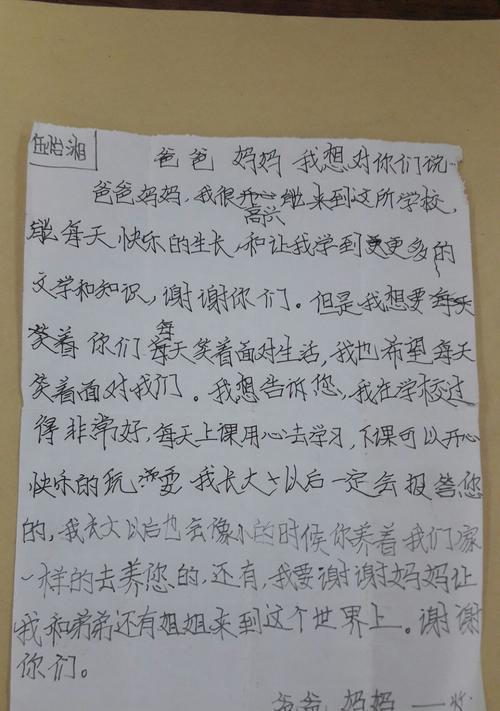 任怡湘
爸爸 妈妈 我想对你们说…
爸爸妈妈，我很高兴能来到这所学校，
能每天快乐的生长，和让我学到更更多的
文学和知识，谢谢你们。但是我想要每天
笑着你们每天笑着面对生活，我也希望每天
笑着面对我们。我想告诉您，我在学校过
得非常好，每天上课用心去学习，下课可以开心
快乐的玩耍 我长大以后一定会报答您
的，我长大以后也会像小的时候你养着我们家
一样的去养您的，还有，我要谢谢妈妈让
我和弟弟还有姐姐来到这个世界上。谢谢
你们。
爸爸 妈妈 ——收